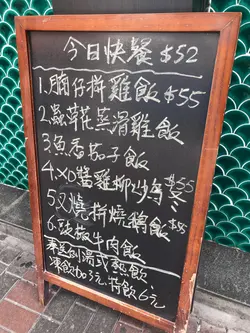 今日快餐 $52
1.腩仔拼雞飯 $55
2.蟲草花蒸滑雞飯
3.魚香茄子飯
4.XO醬雞柳炒烏冬 $55
5.叉燒拼燒鵝飯 $55
6.豉椒牛肉飯
湯或熱飲
凍飲加3元 特飲6元